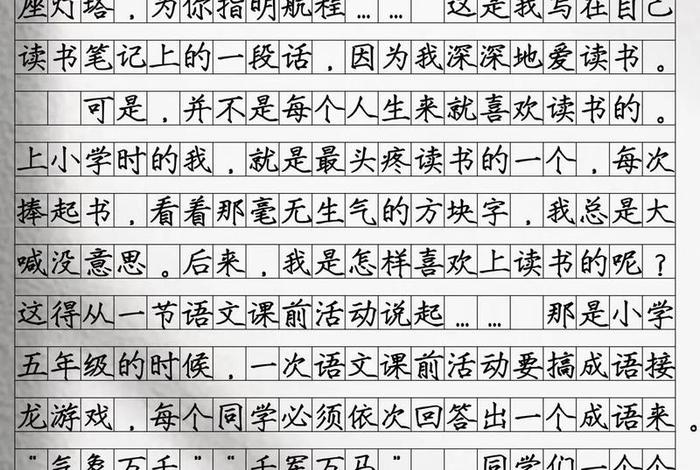 座灯塔，为你指明航程……　这是我写在自己
读书笔记上的一段话，因为我深深地爱读书。
可是，并不是每个人生来就喜欢读书的。
上小学时的我，就是最头疼读书的一个，每次
捧起书，看着那毫无生气的方块字，我总是大
喊没意思。后来，我是怎样喜欢上读书的呢？
这得从一节语文课前活动说起……　那是小学
五年级的时候，一次语文课前活动要搞成语接
龙游戏，每个同学必须依次回答出一个成语来。
“气象万千”“千军万马”　同学们一个个